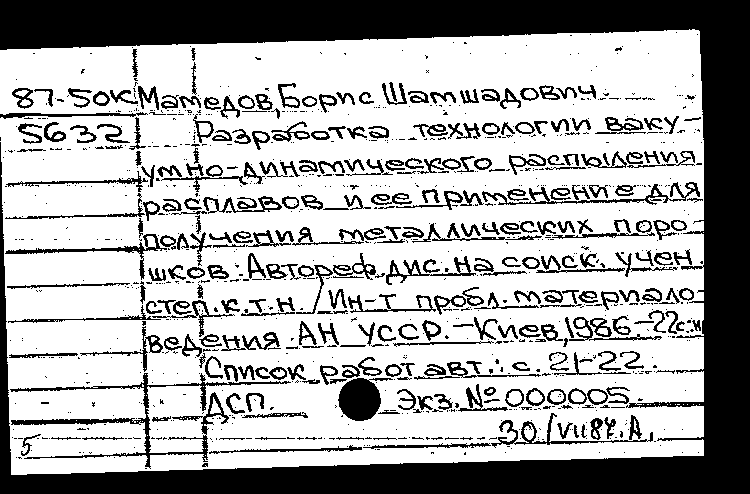 87-50К Мамедов, Борис Шамшадович.
5632 Разработка технологии ваку-
умно-динамического распыления
расплавов и ее применение для
получения металлических поро-
шков: Автореф. дис. на соиск. учен.
степ. к.т.н. /Ин-т пробл. материало-
ведения АН УССР. - Киев, 1986. - 22с.
Список работ авт.: с. 21-22.
ДСП. Экз. № 000005.
30/VII87. А.
5